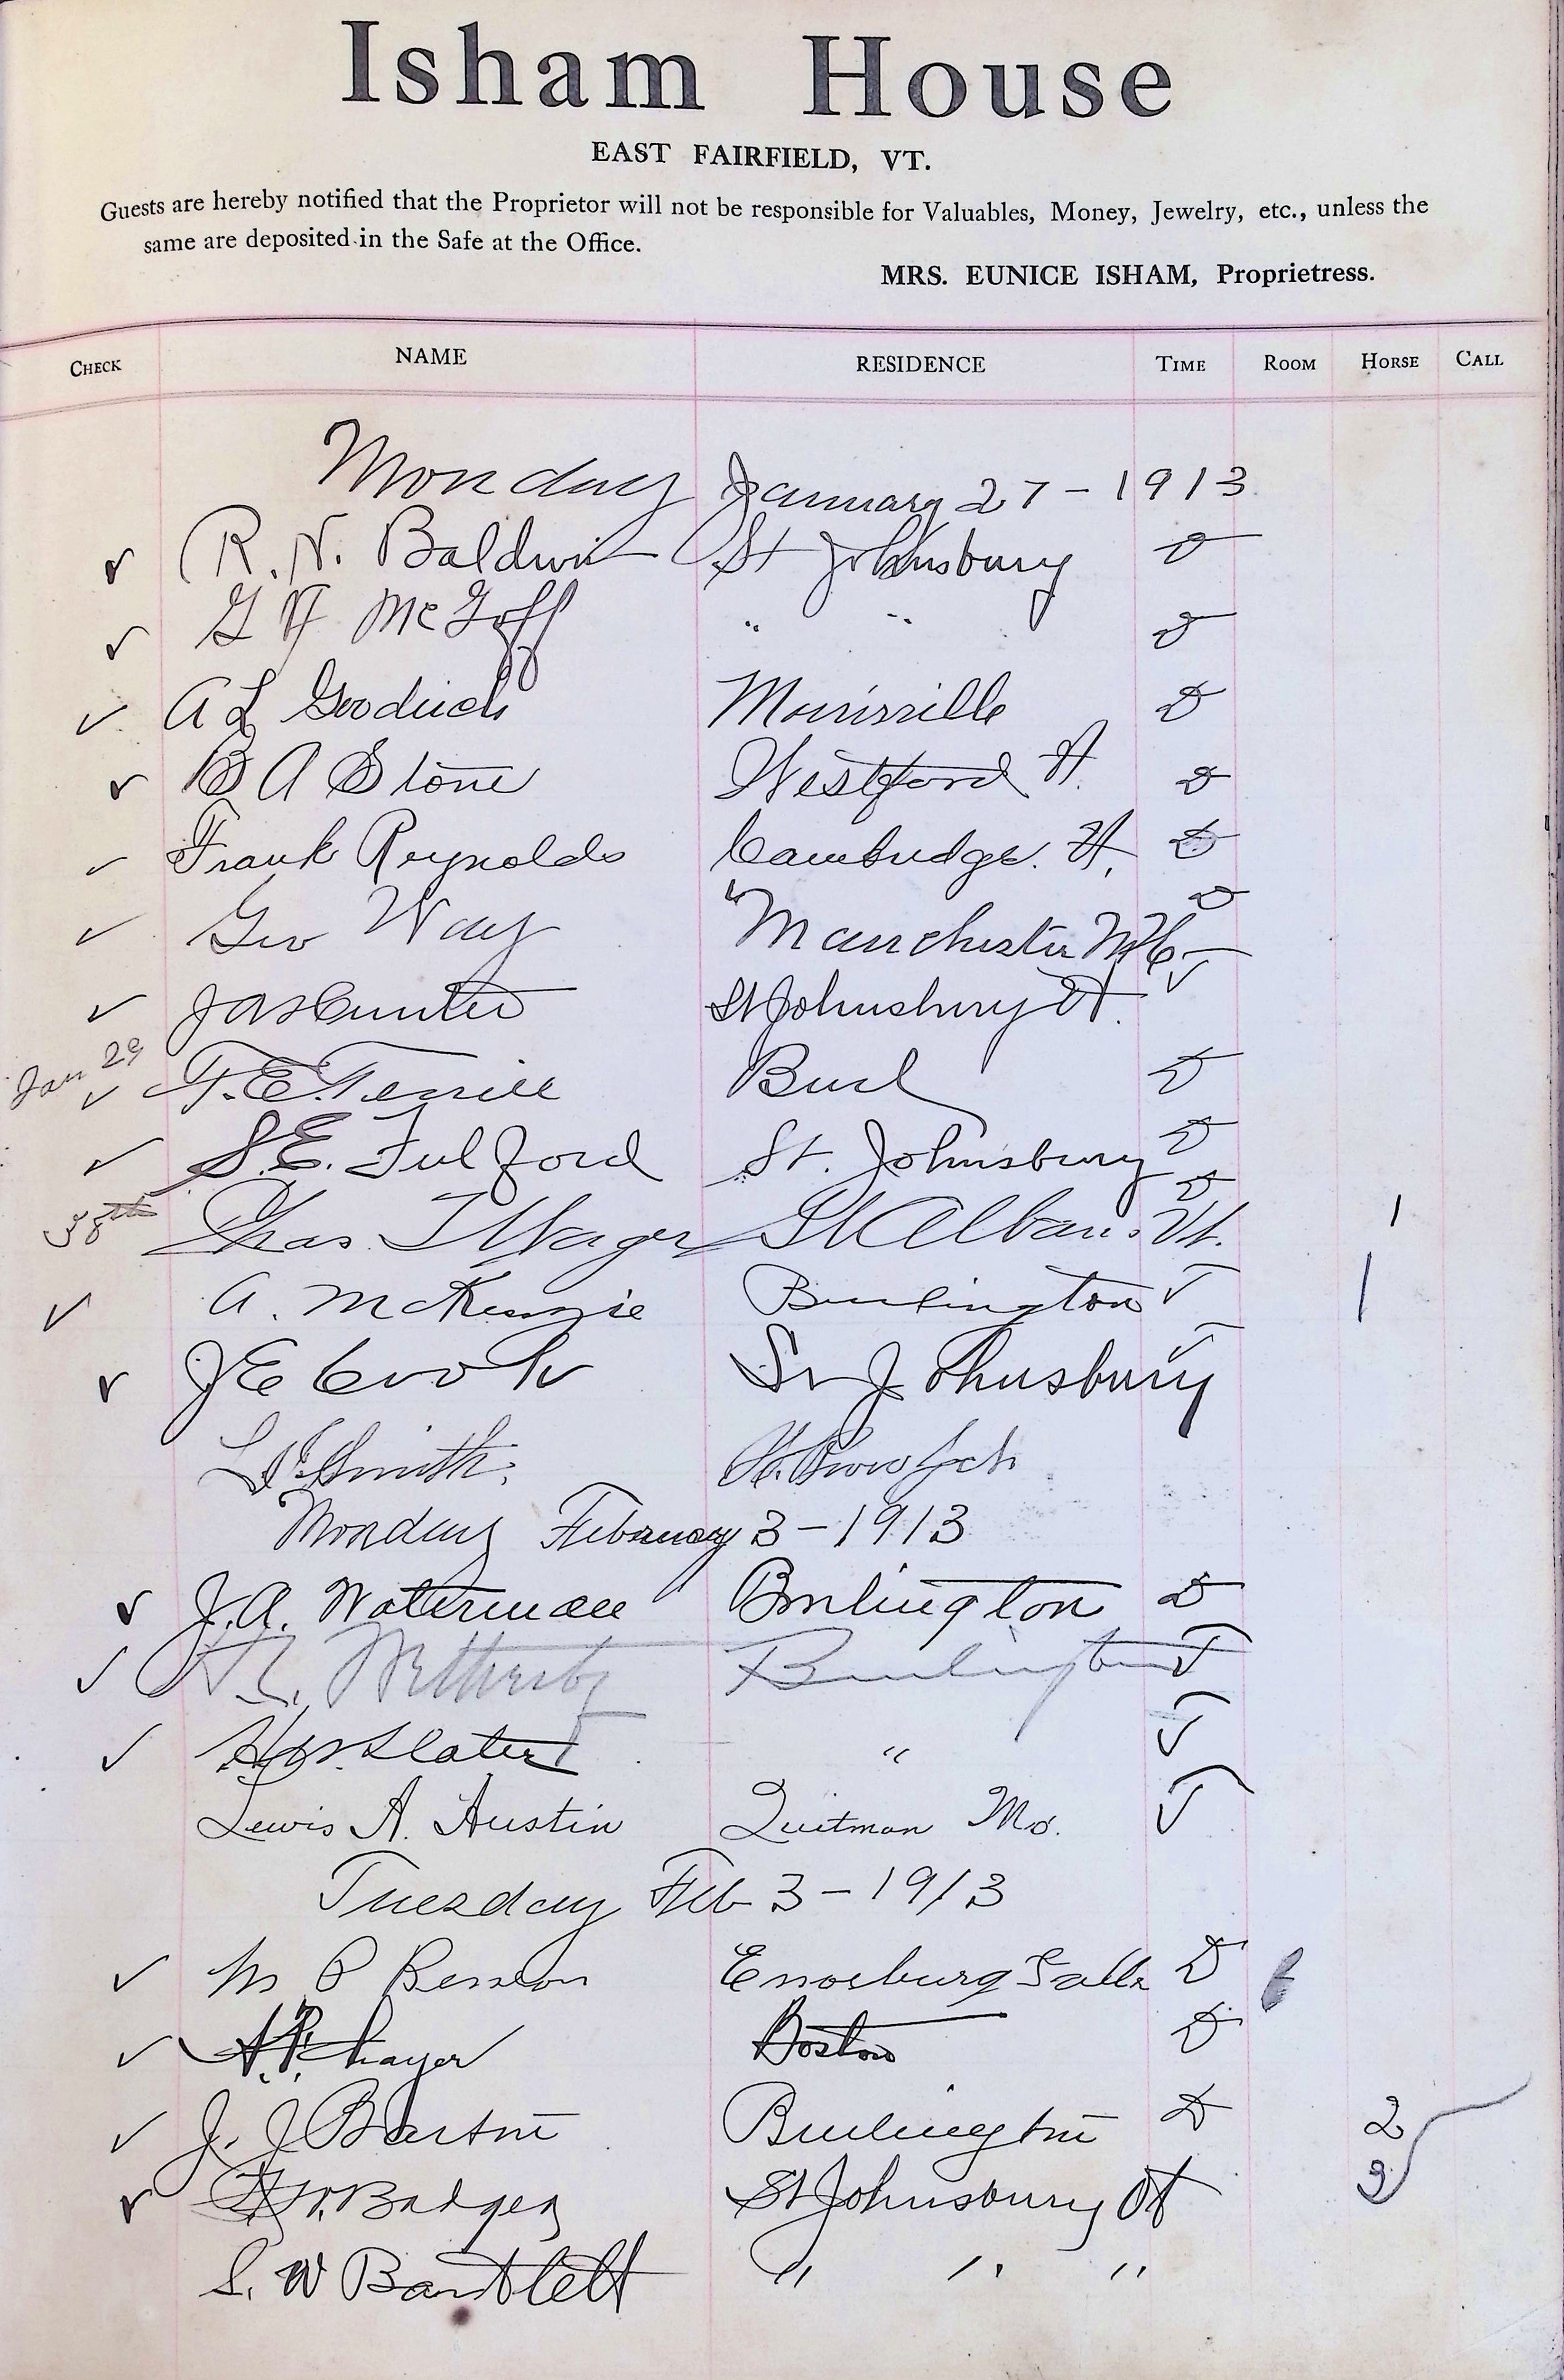 Isham House
EAST FAIRFIELD, VT.
Guests are hereby notified that the Proprietor will not be responsible for Valuables, Money, Jewelry, etc., unless the
same are deposited in the Safe at the Office.
MRS. EUNICE ISHAM, Proprietress.
CHECK NAME RESIDENCE TIME ROOM HORSE CALL
Monday January 27 - 1913
✓ R. N. Baldwin St Johnsbury D
✓ G H McGoff " " D
✓ A L Goodrich Morrisville D
✓ B A Stone Westford Vt D
✓ Frank Reynolds Cambridge. Vt. D
✓ Geo Way Manchester NH D
✓ St Johnsbury Vt.
Jan 29 ✓ F. E. Terrill Burl D
✓ S. E. Fulford St. Johnsbury D
Chas St Albans Vt. D 1
✓ A. McKenzie Burlington 1
✓ J E Crook St Johnsbury
Smith
Monday February 3 - 1913
✓ J. A. Waterman Burlington D
✓ Burlington
✓ Slater "
Lewis A. Austin Quitman Mo.
Tuesday Feb 3 - 1913
✓ M P Benson Enosburg Falls D
✓ Thayer Boston D
✓ J. J Barton Burlington D 2
✓ Badger St Johnsbury Vt 2
S. W Bartlett " " "